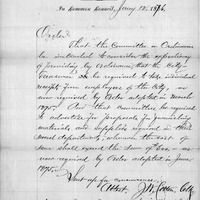 In Common Council, Jany 12, 1876.
Ordered
That the Committee on Ordinances
be instructed to consider the expediency
of providing by Ordinance that the City
Treasurer be required to take individual
receipts from employees of the City, as
now required by Order adopted in March
1875. And that Committees be required
to advertise for proposals for furnishing
materials and supplies required in their
several departments whenever the cost of
same shall exceed the sum of
now required by Order adopted in June
1875.
Sent up for concurrence.
Attest